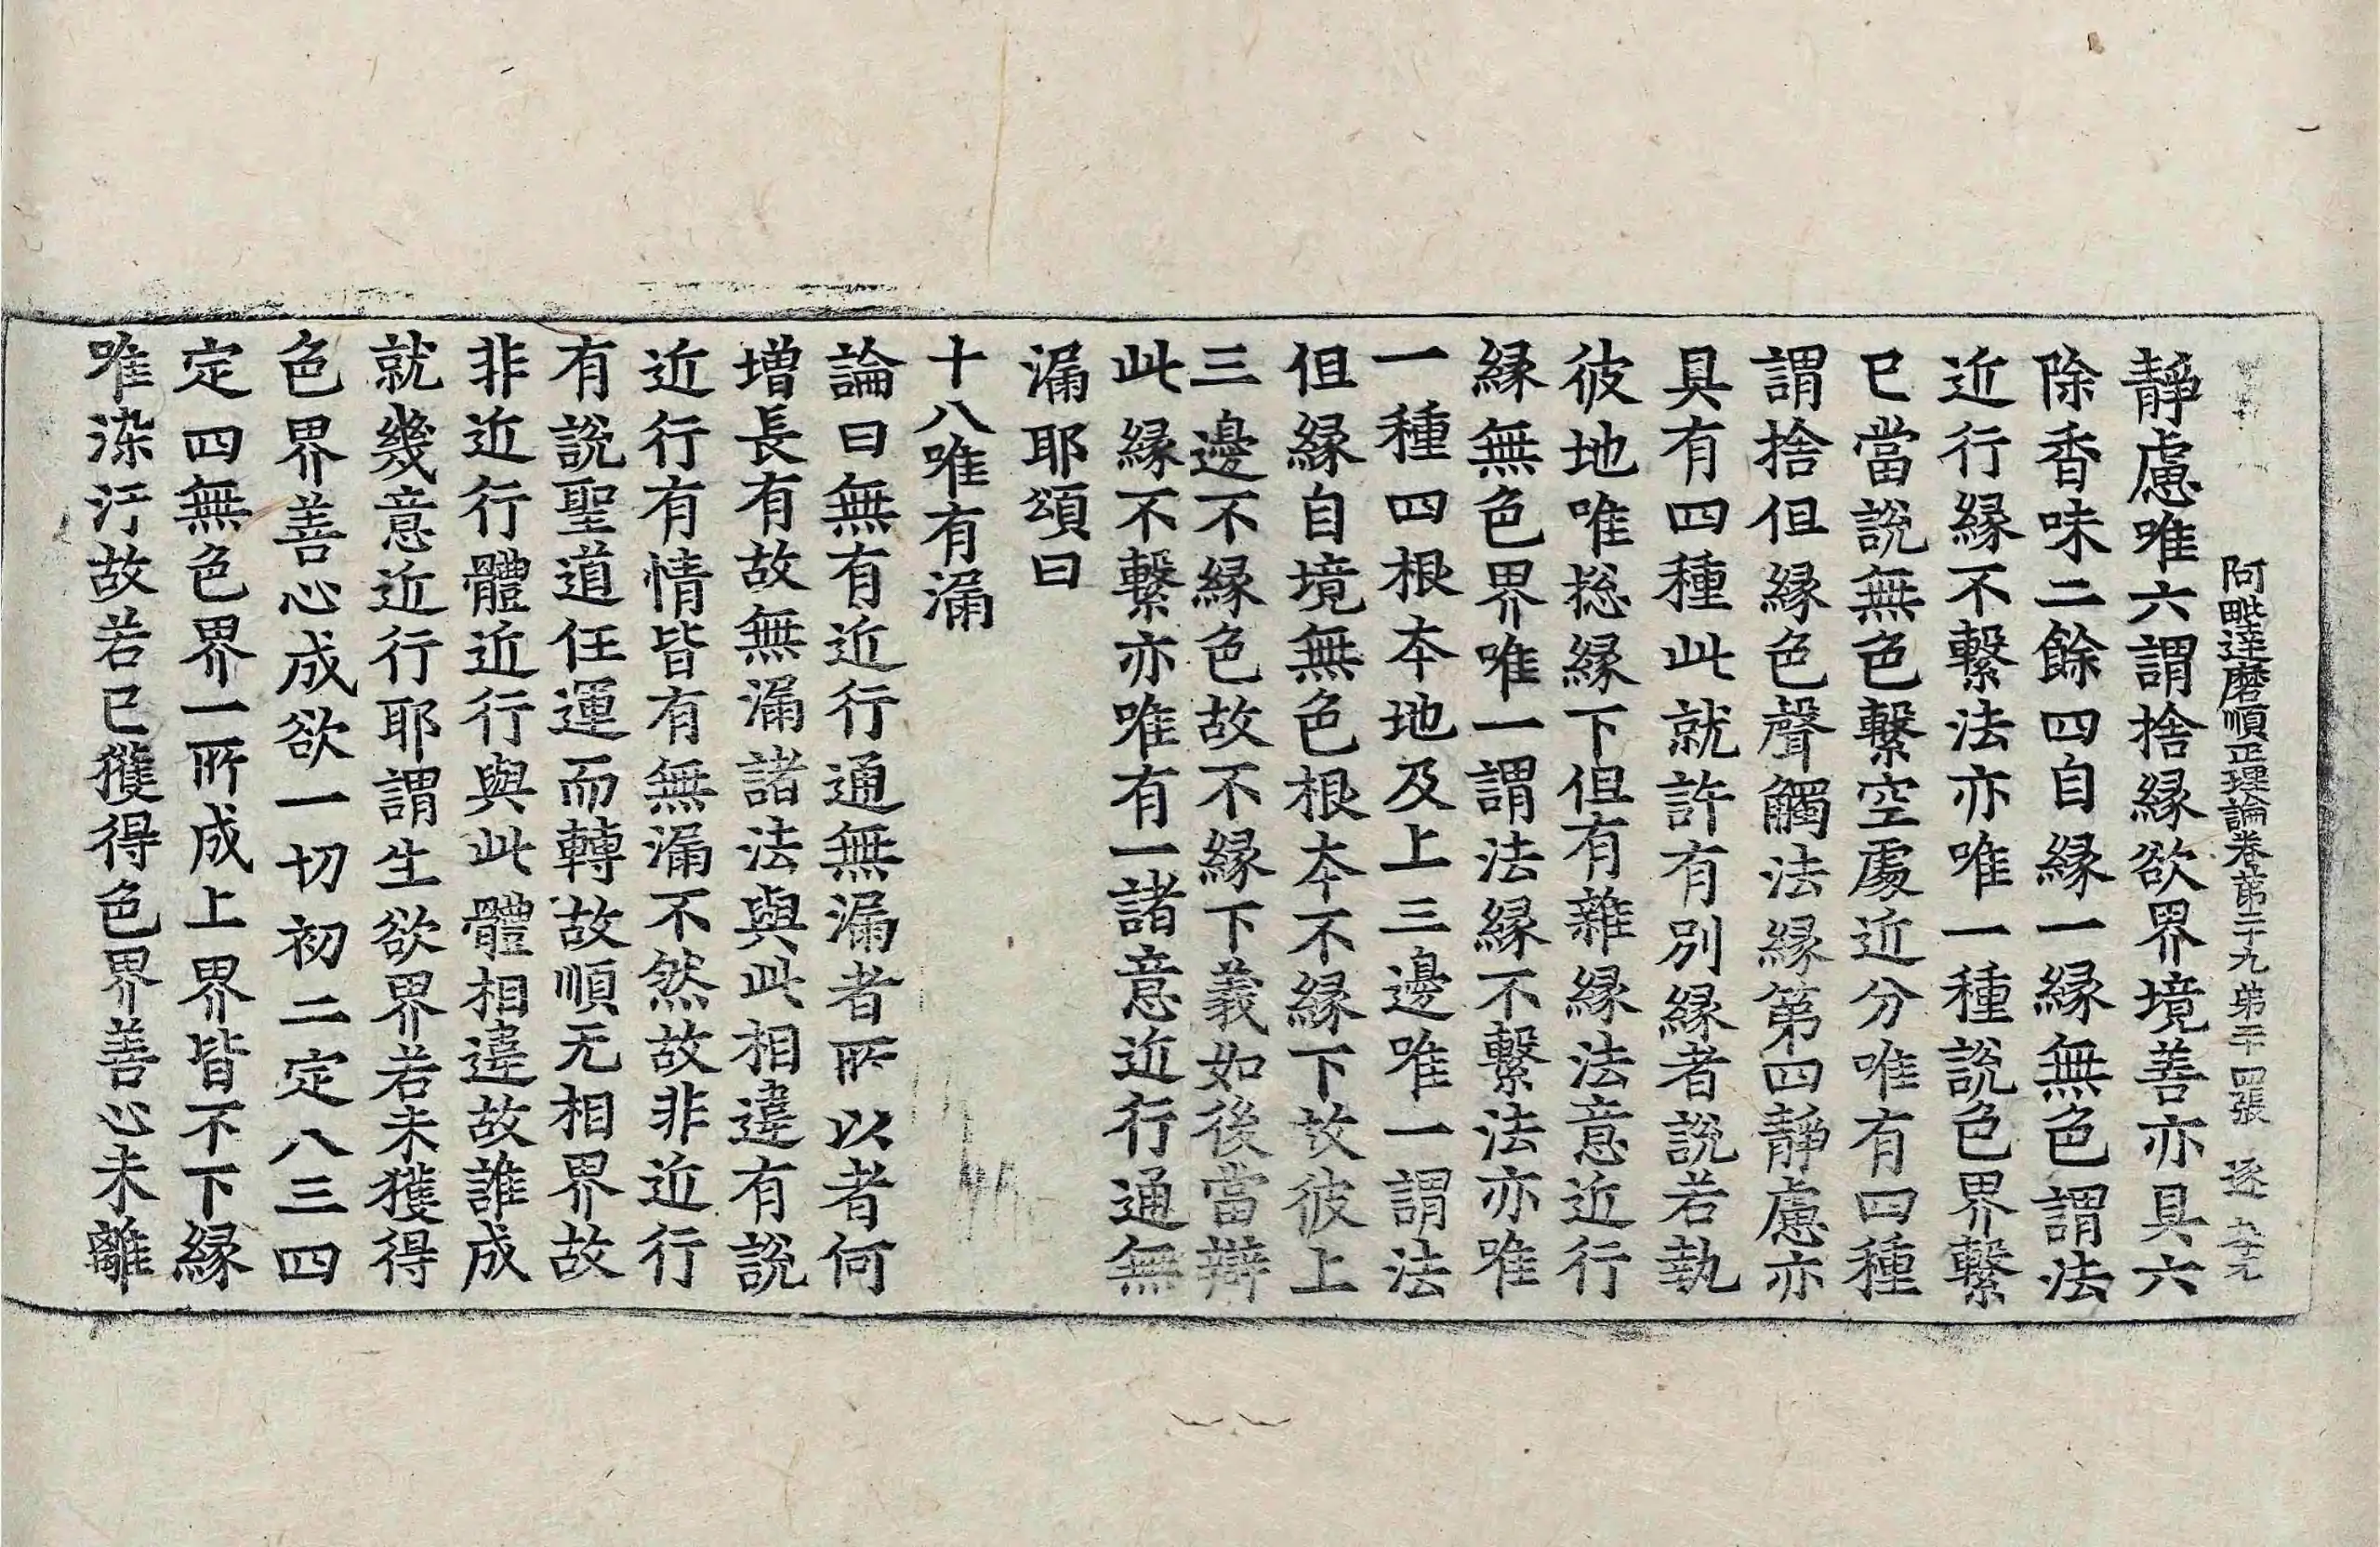 阿毗達磨順正理論卷第二十九 第二十四張 逐
靜慮唯六謂捨縁欲界境善亦具六
除香味二餘四自縁一縁無色謂法
近行縁不繫法亦唯一種說色界繫
已當說無色繫空處近分唯有四種
謂捨但縁色聲觸法縁第四靜慮亦
具有四種此就許有別縁者說若執
彼地唯揔縁下但有雜縁法意近行
縁無色界唯一謂法縁不繫法亦唯
一種四根夲地及上三邊唯一謂法
但縁自境無色根夲不縁下故彼上
三邊不縁色故不縁下義如後當辯
此縁不繫亦唯有一諸意近行通無
漏耶頌曰
十八唯有漏
論曰無有近行通無漏者所以者何
增長有故無漏諸法與此相違有說
近行有情皆有無漏不然故非近行
有說聖道任運而轉故順无相界故
非近行體近行與此體相違故誰成
就幾意近行耶謂生欲界若未獲得
色界善心成欲一切初二定八三四
定四無色界一所成上界皆不下縁
唯染汙故若已獲得色界善心未離